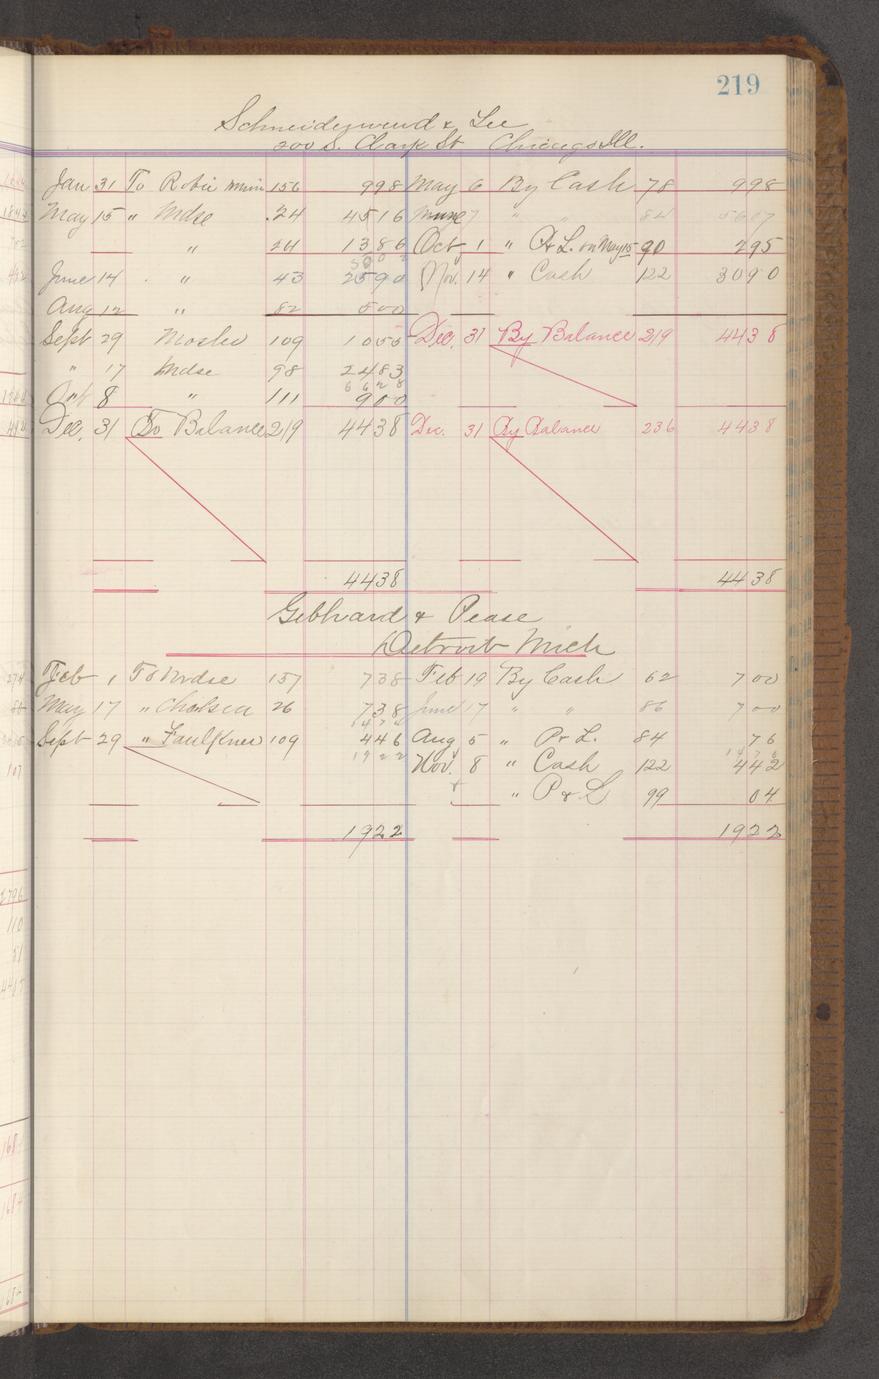 219
Schneiderwend & Lee
200 S. Clark St Chicago Ill.
Jan 31 To Robie 156 998 May 6 By Cash 78 998
May 15 " Mdse 24 4516 June 7 " " 84 5607
" 24 1386 Oct 1 " P&L. on May 15 90 295
June 14 " 43 2590 Nov. 14 " Cash 122 3090
Aug 12 " 82 500
Sept 29 Mosher 109 1055 Dec. 31 By Balance 219 4438
" 17 Mdse 98 2483
6628
Oct 8 " 111 900
Dec. 31 To Balance 219 4438 Dec. 31 By Balance 236 4438
4438 4438
Gebhard & Pease
Detroit Mich
Feb 1 To Mdse 157 738 Feb 19 By Cash 62 700
May 17 " Chelsea 26 738 June 17 " " 86 700
1476
Sept 29 " Faulkner 109 446 Aug 5 " P & L. 84 76
1922 1476
Nov. 8 " Cash 122 442
" P & L 99 04
1922 1922